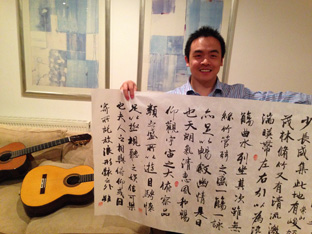 少長咸集此地有
茂林脩竹又有清流激
湍暎帶左右引以為流
觴曲水列坐其次雖無
絲竹管弦之盛一觴一詠
亦足以暢敘幽情是日
也天朗氣清惠風和暢
仰觀宇宙之大俯察品
類之盛所以遊目騁懷
足以極視聽之娛信可樂
也夫人之相與俯仰或因
寄所託放浪形骸之外